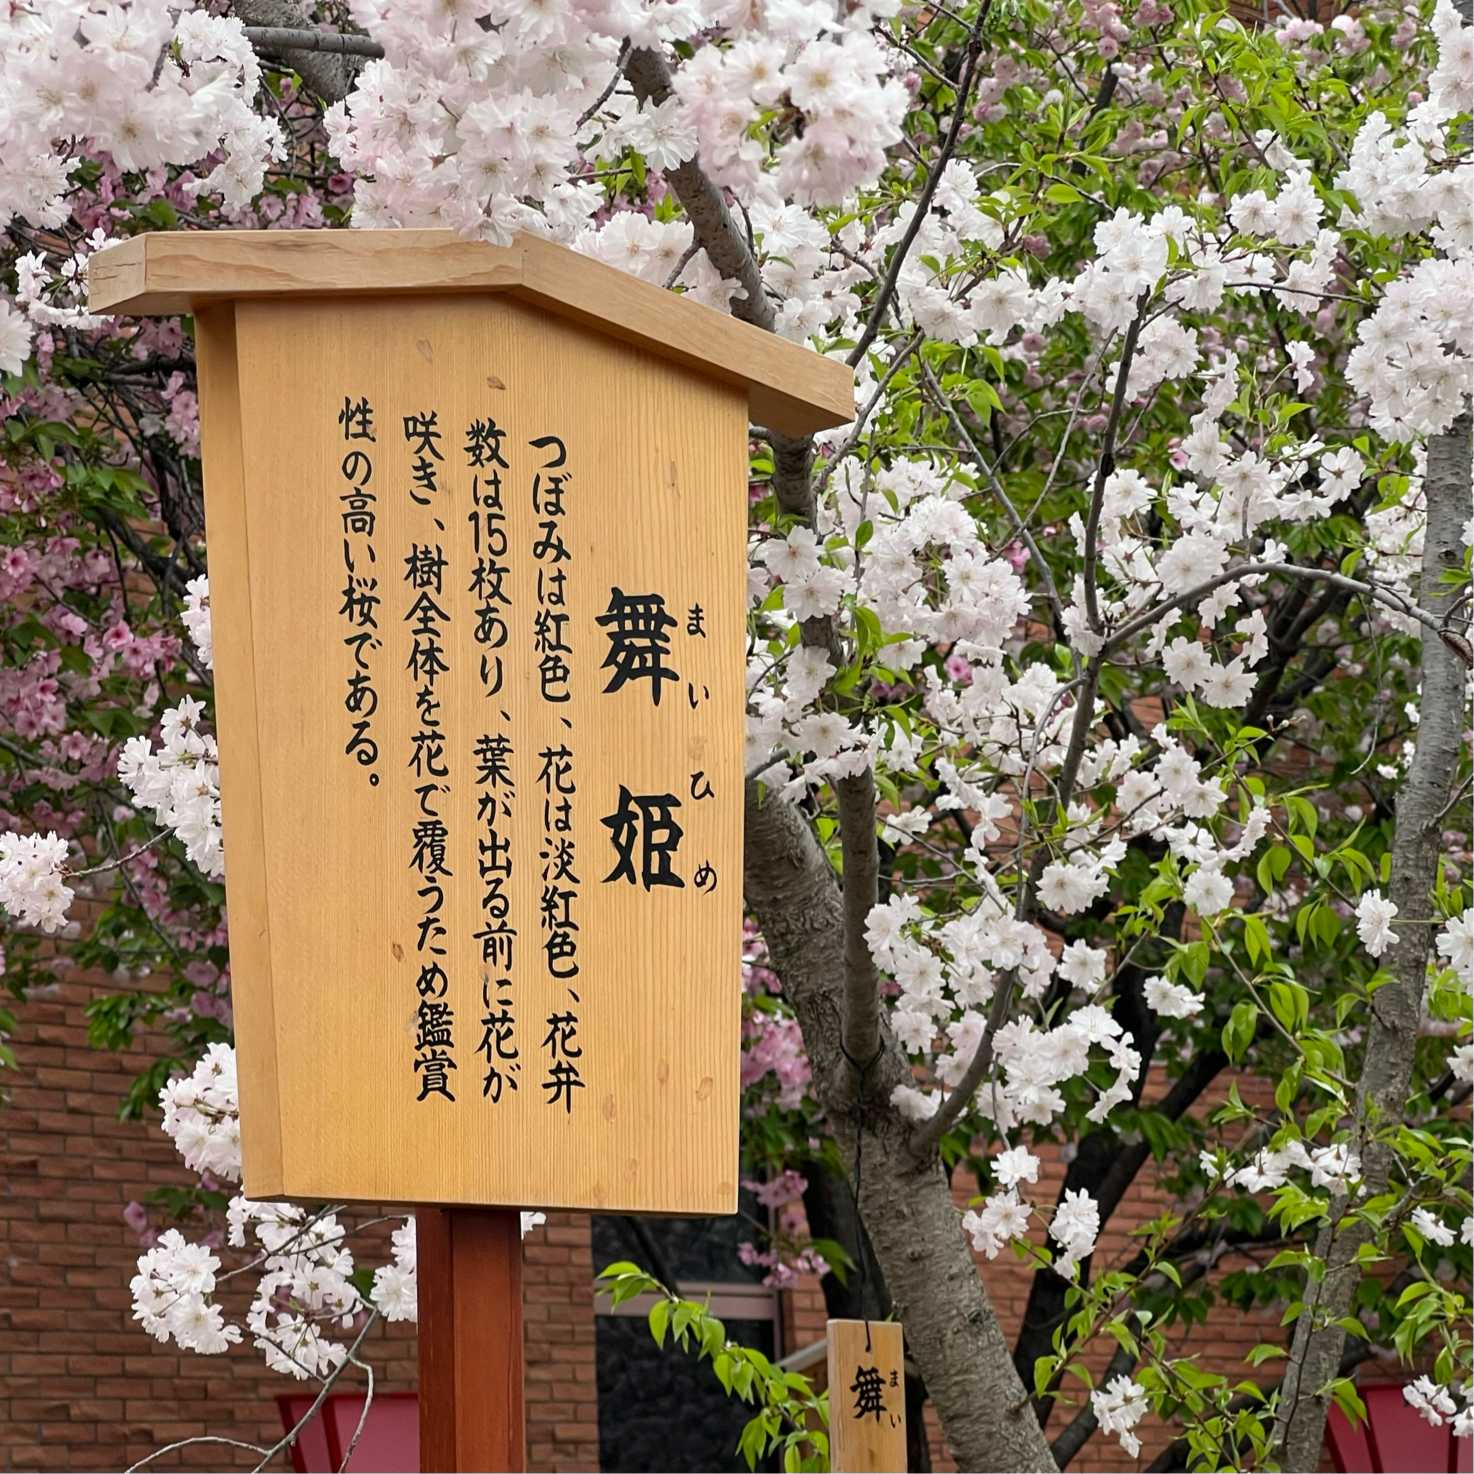 まいひめ
舞姫
つぼみは紅色、花は淡紅色、花弁
数は15枚あり、葉が出る前に花が
咲き、樹全体を花で覆うため鑑賞
性の高い桜である。
まい
舞